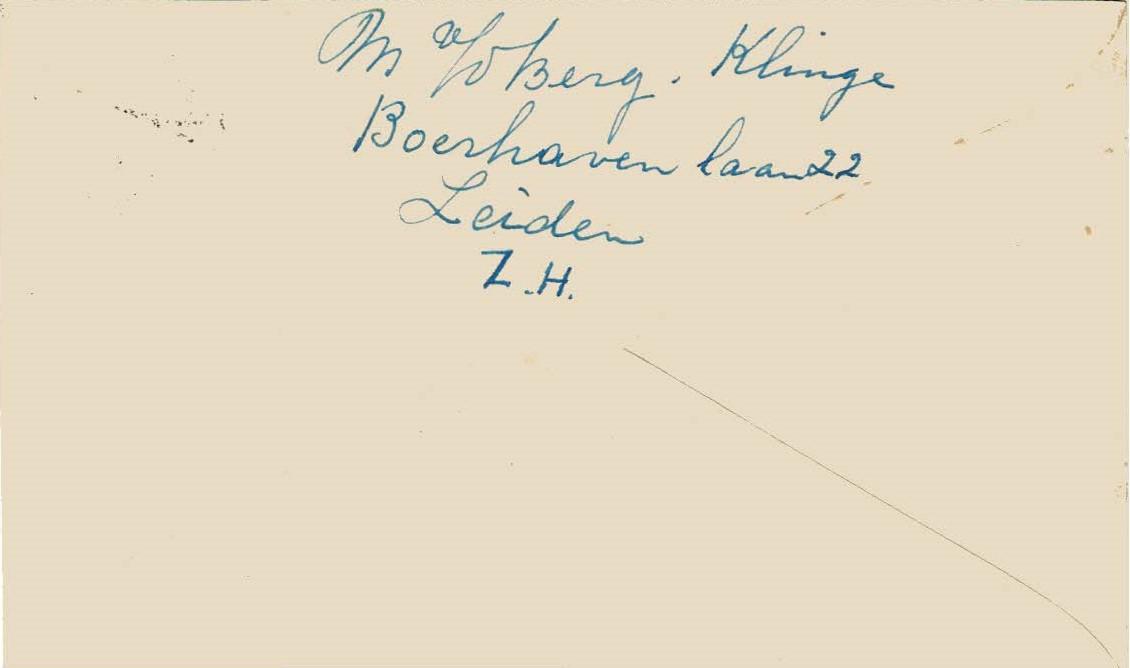 M v/d Berg. Klinge
Boerhaven laan 22
Leiden
Z.H.